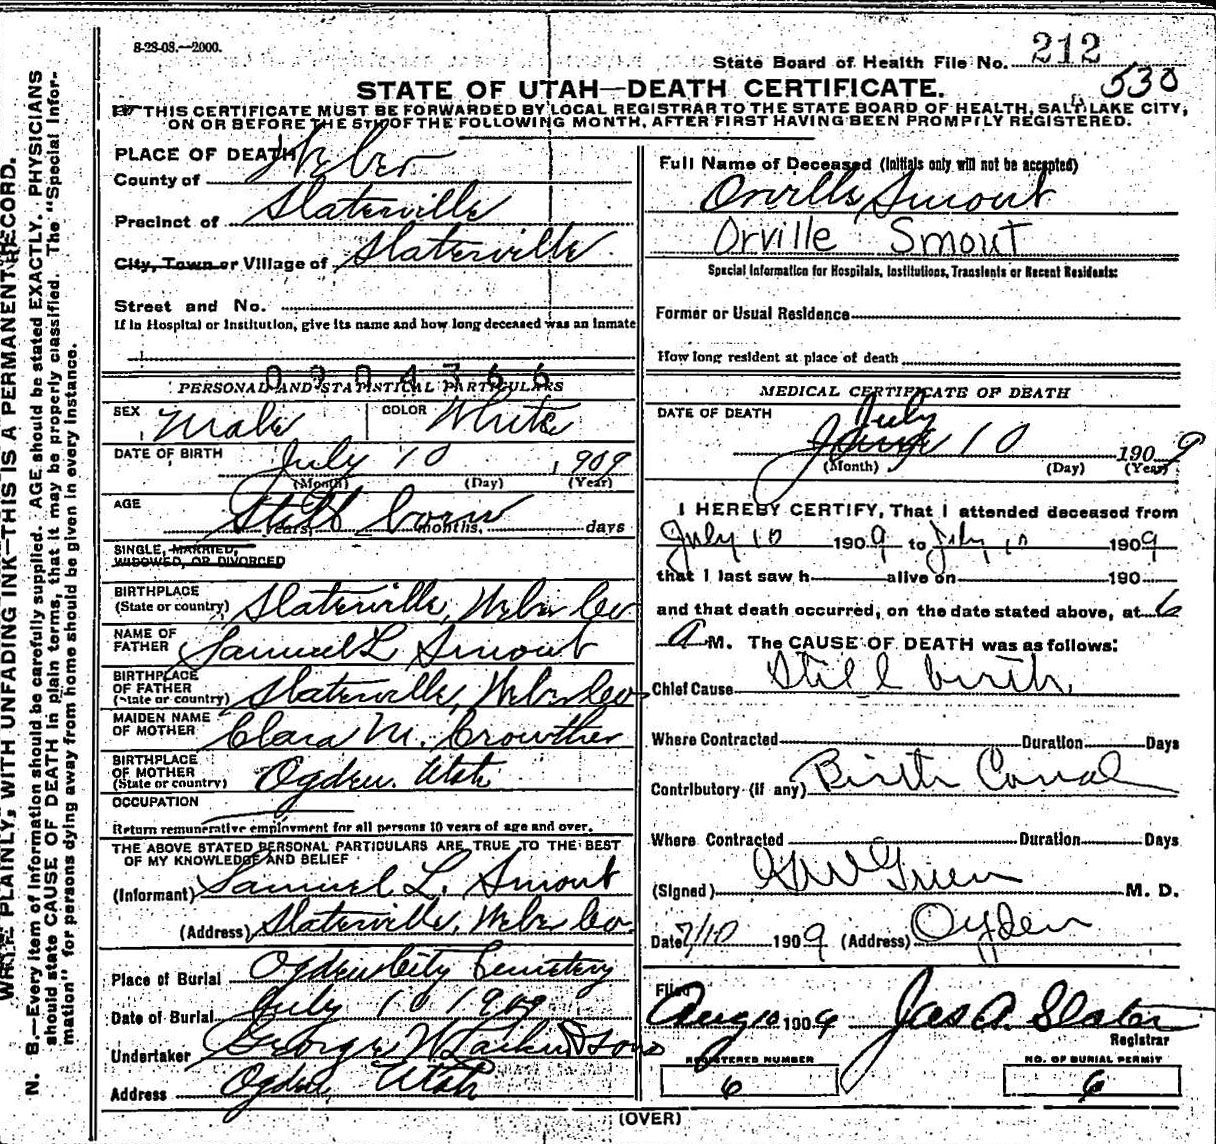 8-28-08.—2000.
State Board of Health File No. 212
530
STATE OF UTAH—DEATH CERTIFICATE.
THIS CERTIFICATE MUST BE FORWARDED BY LOCAL REGISTRAR TO THE STATE BOARD OF HEALTH, SALT LAKE CITY,
ON OR BEFORE THE 5TH OF THE FOLLOWING MONTH, AFTER FIRST HAVING BEEN PROMPTLY REGISTERED.
WRITE PLAINLY, WITH UNFADING INK—THIS IS A PERMANENT RECORD.
N. B.—Every item of information should be carefully supplied. AGE should be stated EXACTLY. PHYSICIANS
should state CAUSE OF DEATH in plain terms, that it may be properly classified. The "Special Infor-
mation" for persons dying away from home should be given in every instance.
PLACE OF DEATH
County of Weber
Precinct of Slaterville
City, Town or Village of Slaterville
Street and No.
If in Hospital or Institution, give its name and how long deceased was an inmate
0904366
PERSONAL AND STATISTICAL PARTICULARS
SEX Male COLOR White
DATE OF BIRTH July 10, 1909
(Month) (Day) (Year)
AGE Still born
years, months, days
SINGLE, MARRIED,
WIDOWED, OR DIVORCED
BIRTHPLACE
(State or country) Slaterville, Weber Co
NAME OF
FATHER Samuel L Smout
BIRTHPLACE
OF FATHER
(State or country) Slaterville, Weber Co
MAIDEN NAME
OF MOTHER Clara M. Crowther
BIRTHPLACE
OF MOTHER
(State or country) Ogden, Utah
OCCUPATION
Return remunerative employment for all persons 10 years of age and over.
THE ABOVE STATED PERSONAL PARTICULARS ARE TRUE TO THE BEST
OF MY KNOWLEDGE AND BELIEF
(Informant) Samuel L. Smout
(Address) Slaterville, Weber Co.
Place of Burial Ogden City Cemetery
Date of Burial July 10 1909
Undertaker George W Larkin & Sons
Address Ogden, Utah
Full Name of Deceased (Initials only will not be accepted)
Orville Smout
Orville Smout
Special Information for Hospitals, Institutions, Transients or Recent Residents:
Former or Usual Residence
How long resident at place of death
MEDICAL CERTIFICATE OF DEATH
DATE OF DEATH July
June 10 1909
(Month) (Day) (Year)
I HEREBY CERTIFY, That I attended deceased from
July 10 1909 to July 10 1909
that I last saw h alive on 190
and that death occurred, on the date stated above, at 6
A M. The CAUSE OF DEATH was as follows:
Chief Cause Still birth.
Where Contracted Duration Days
Contributory (if any) Birth Canal
Where Contracted Duration Days
(Signed) GW Green M. D.
Date 7/10 1909 (Address) Ogden
Filed
Aug 10 1909 Jas A. Slater
Registrar
REGISTERED NUMBER
6
NO. OF BURIAL PERMIT
6
(OVER)